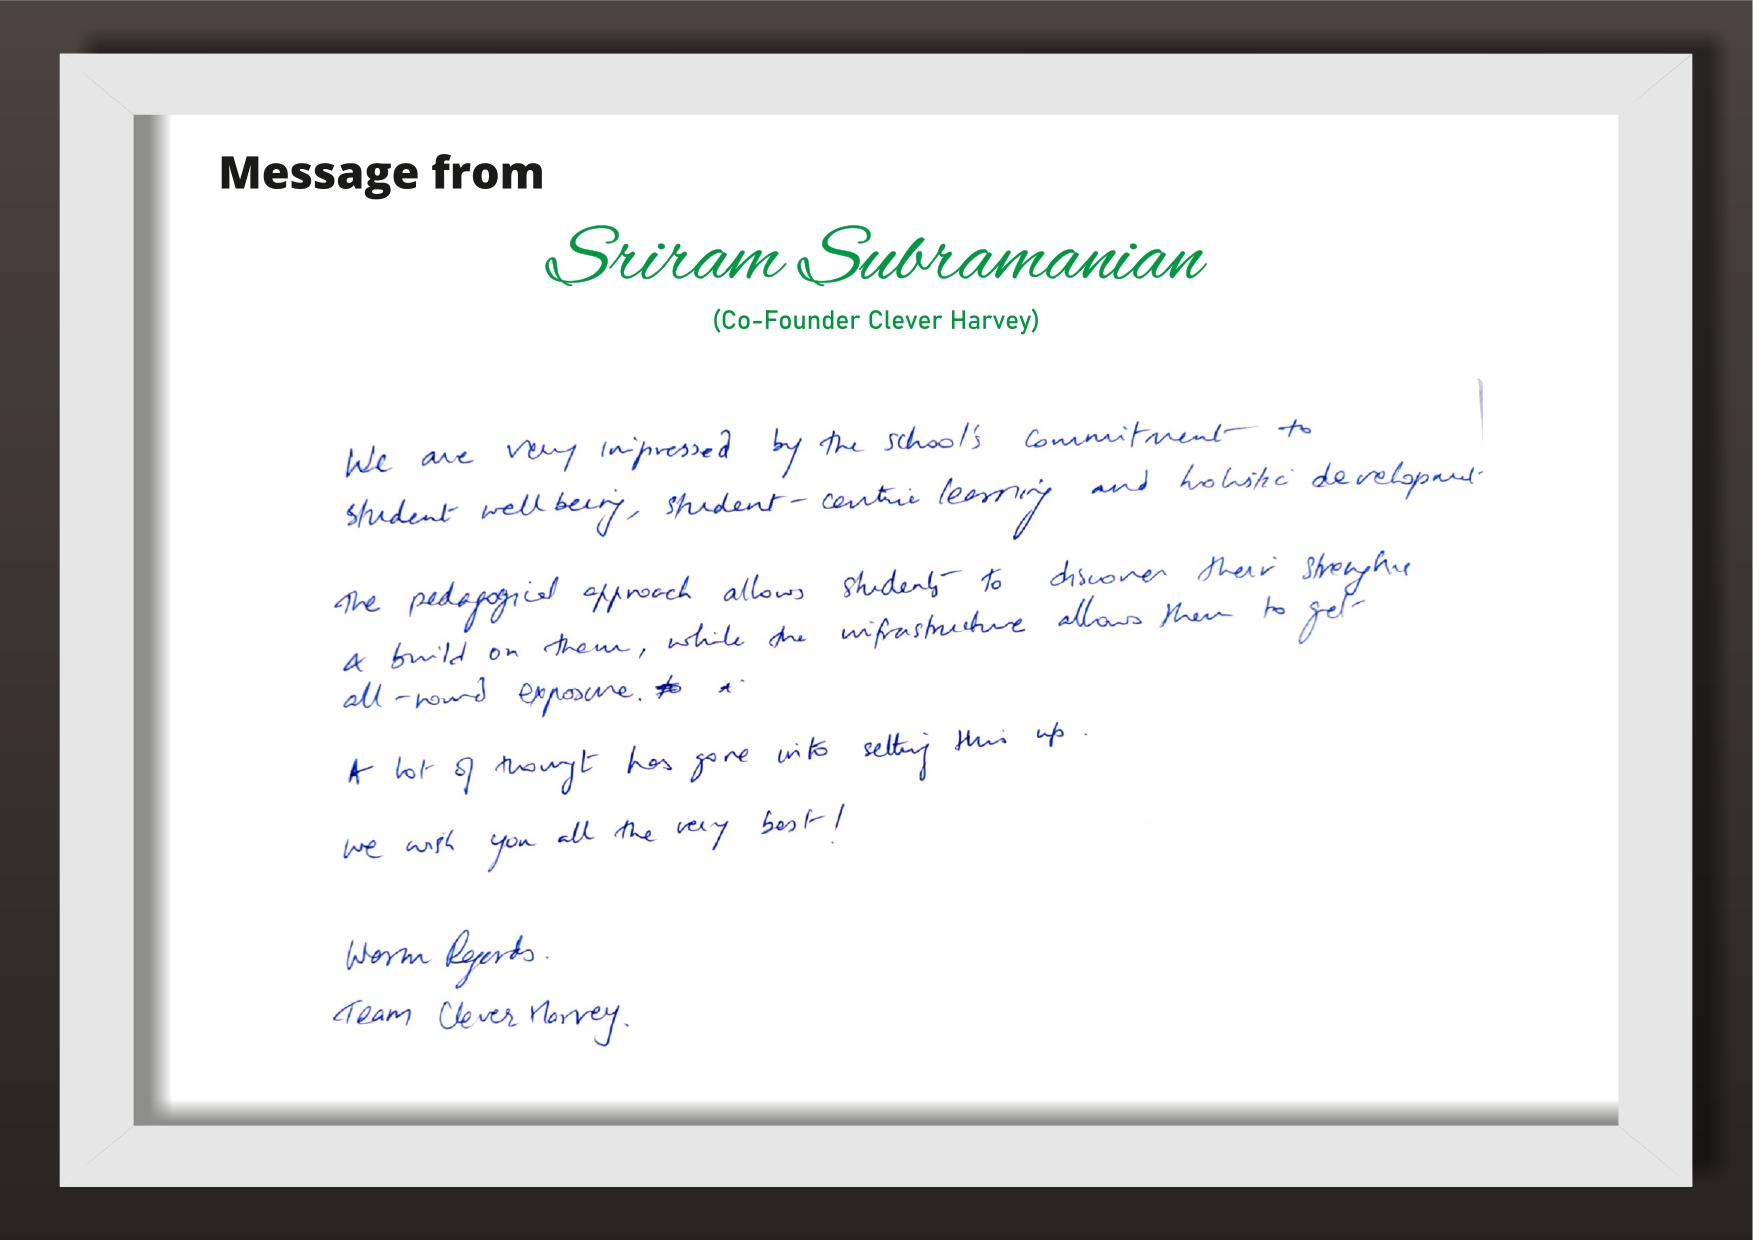 Message from
Sriram Subramanian
(Co-Founder Clever Harvey)
We are very impressed by the school's commitment to
student wellbeing, student-centric learning and holistic development
The pedagogical approach allows students to discover their strengths
& build on them, while the infrastructure allows them to get
all-round exposure.
A lot of thought has gone into setting this up.
We wish you all the very best!
Warm Regards.
Team Clever Harvey.